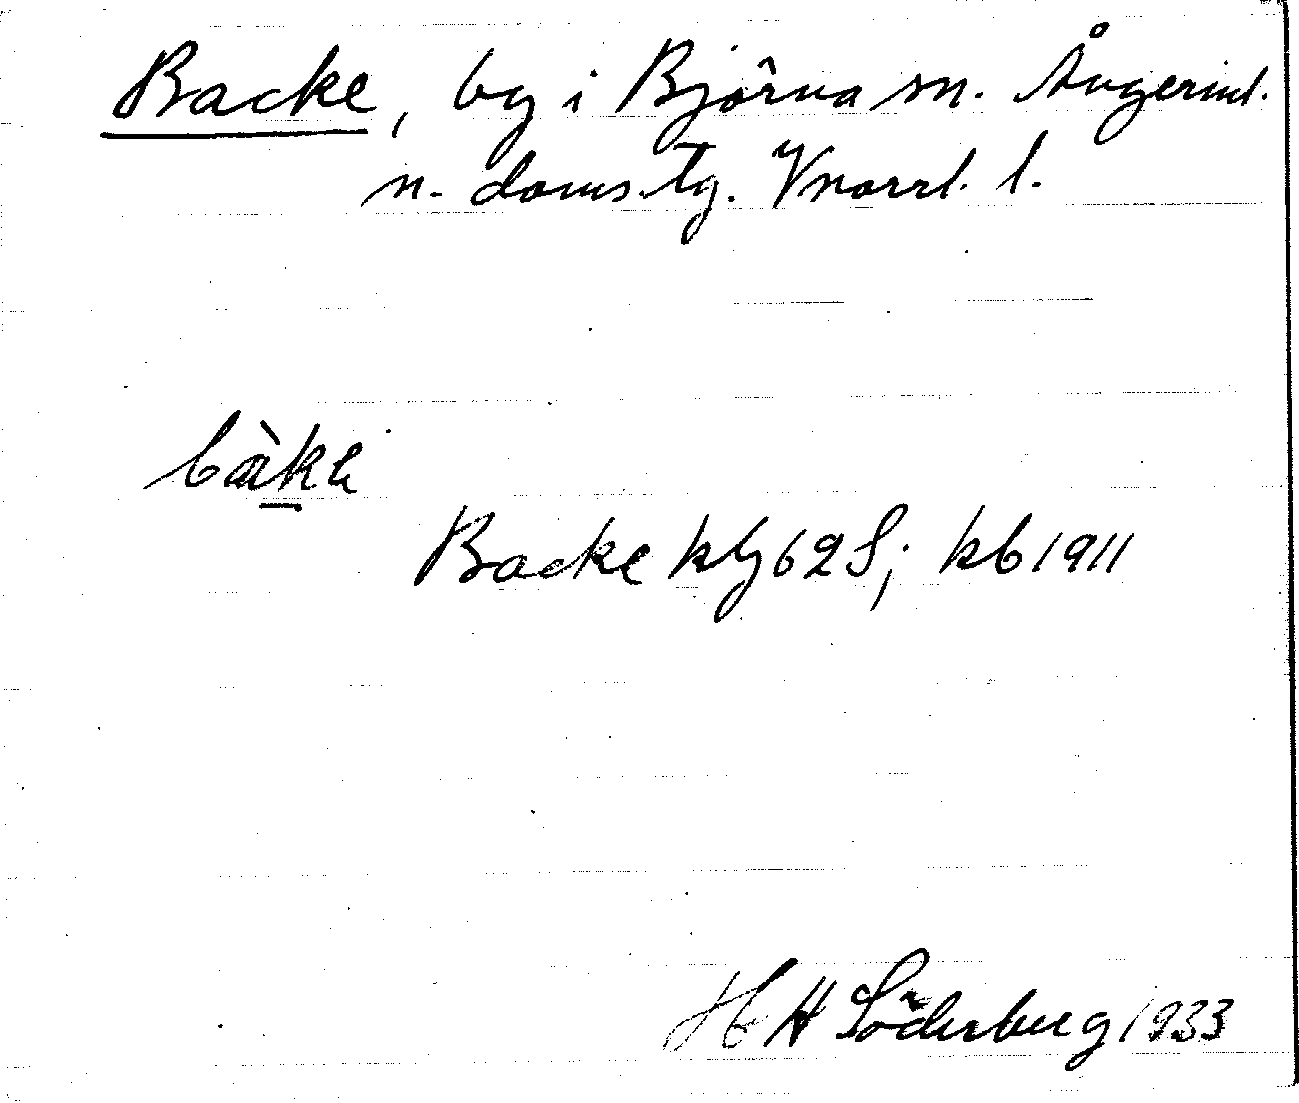 Backe, by i Björna sn. Ångerml.
n. doms.tg. Vnorrl. l.
bàke
Backe kbg 62 S; kb 1911
H H Söderberg 1933